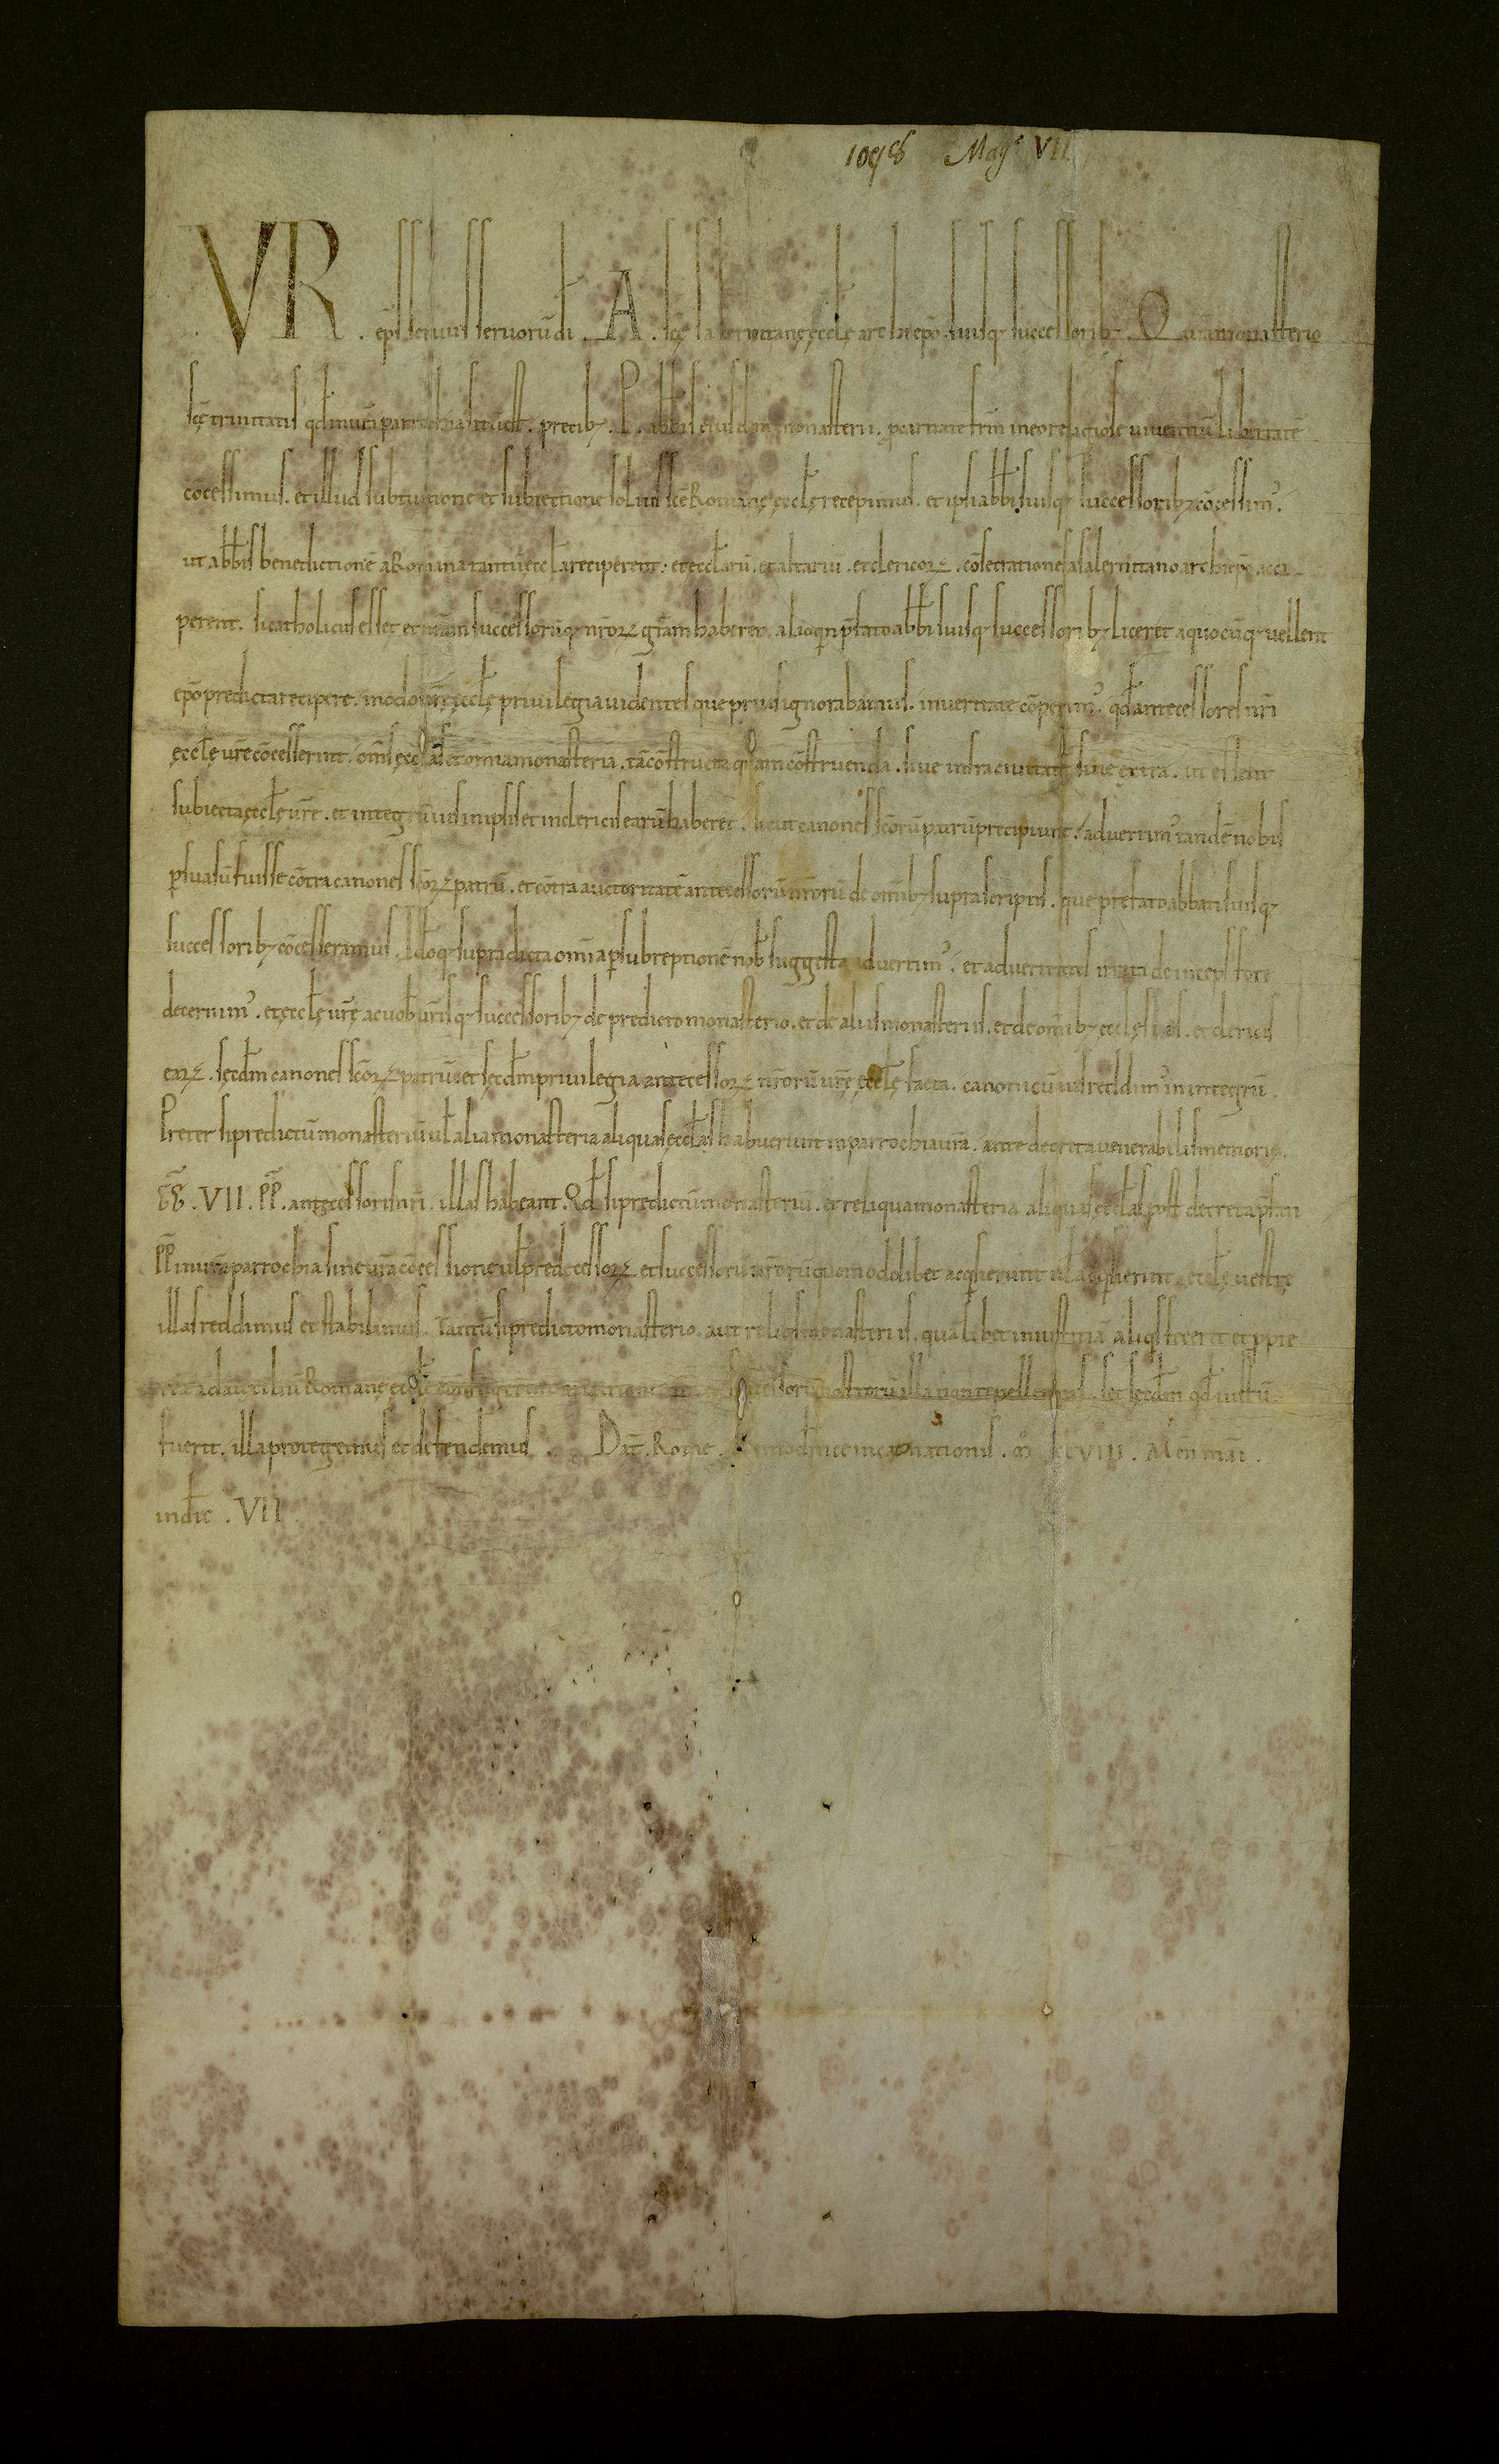 1098 Mag.^e VII
VR. ep̄s servus servorū di. A. scę salernitanę ęcclę archiepō. suisq; successorib;. Quia monasterio
scę trinitatis qd̄ in vr̄a parrochia situ est. precib;. P. abb̄is eiusdem monasterii. p̄ caritate frm̄ in eo religiose viventiū libertatē
cōcessimus. et illud sub tuitione et subiectione solius scę Romanę ęcclę recepimus. et ipsi abb̄i suisq; successorib; cōcessim'.
ut abb̄is benedictionē a Romana tantū ęccl̄a reciperent. et ęccl̄arū. et altariū. et clericoꝝ. cōsecrationes a salernitano archiepō acci
perent. si catholicus esset et nr̄am successorūq; nr̄oꝝ gr̄am haberet. alioqn̄ p̄fato abb̄i suisq; successorib; liceret a quocūq; vellent
epō predicta recipere. modo vr̄ę ęcclę privilegia videntes que prius ignorabamus. in veritate cōperim'. qd̄ antecessores nr̄i
ęcclę vr̄e cōcesserunt. om̄s ęccl̄as et omnia monasteria. tā cōstructa q̄ am cōstruenda. sive infra civitatē sive extra. ut essent
subiecta ęcclę vr̄e. et integrū ius in ipsis et in clericis earū haberet. sicut canones scōrū patrū precipiunt. advertim' tandē nobis
p̄suasū fuisse cōtra canones scōꝝ patrū. et cōtra auctoritatē antecessorū nr̄orū de omīb; suprascriptis. que prefato abbati suisq;
successorib; cōcesseramus. Idōq; supradicta omīa p̄ subreptionē nob̄ suggesta advertim'. et advertentes irrita deinceps fore
decernim'. et ęcclę vr̄ę ac vob̄ vr̄isq; successorib; de predicto monasterio. et de aliis monasteriis. et de omīb; ęcclesiis. et clericis
eaꝝ. secdm̄ canones scōꝝ patrū. et secdm̄ privilegia antecessoꝝ nr̄orū vr̄ę ęcclę facta. canonicū ius reddim' in integrū.
Preter si predictū monasteriū ul̄ alia monasteria aliquas ęccl̄as habuerunt in parrochia vr̄a. ante decreta venerabilis memorię.
G̅G̅. VII. P̅P̅. antecessoris nr̄i. illas habeant. Qd̄ si predictū monasteriū. et reliqua monasteria aliquas ęccl̄as post decreta p̄fati
P̅P̅. in vr̄a parrochia sine vr̄a cōcessione ul̄ predecessoꝝ et successorū vr̄orū quomodolibet acq̄sierunt ul̄ acq̄sierint. ęcclę vestrę
illas reddimus et stabilimus. Tantū si predicto monasterio. aut reliq̄s monasteriis. quālibet iniustitiā aliq̄s fecerit et ppre
rea ad auxiliū Romanę ęcclę successorū nostrorū illa non repellemus. set secdm̄ qd̄ iustū
fuerit. illa protegemus et defendemus. Dat̄. Rome. Anno dn̄ice incarnationis. M̊ XCVIII. Mēn māi.
indic̄. VII.